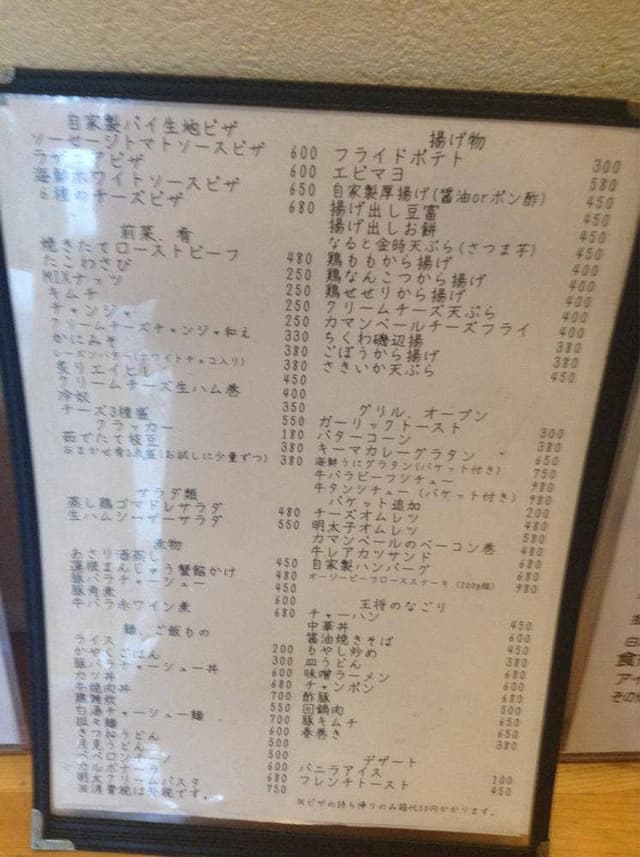 自家製パイ生地ピザ
ソーセージトマトソースピザ
ラザニアピザ
海鮮ホワイトソースピザ
6種のチーズピザ
600
600
650
680
前菜、肴
焼きたてローストビーフ
たこわさび
MIXナッツ
キムチ
チャンジャ
クリームチーズチャンジャ和え
かにみそ
レーズンバター(ホワイトチョコ入り)
炙りエイヒレ
クリームチーズ生ハム巻
冷奴
チーズ3種盛
クラッカー
茹でたて枝豆
おまかせ肴3点盛(お試しに少量ずつ)
480
250
250
250
330
380
380
450
400
350
550
180
380
380
サラダ類
蒸し鶏ゴマドレサラダ
生ハムシーザーサラダ
480
550
煮物
あさり酒蒸し
蓮根まんじゅう蟹餡かけ
豚バラチャーシュー
豚角煮
牛バラ赤ワイン煮
450
480
450
600
麺、ご飯もの
ライス
かやくごはん
豚バラチャーシュー丼
カツ丼
牛焼肉丼
鶏雑炊
白湯チャーシュー麺
担々麺
きつねうどん
月見うどん
ペペロンチーノ
カルボナーラ
明太クリームパスタ
※消費税は外税です。
200
300
600
600
680
700
550
700
500
500
500
600
680
750
揚げ物
フライドポテト
エビマヨ
自家製厚揚げ(醤油orポン酢)
揚げ出し豆富
揚げ出しお餅
なると金時天ぷら(さつま芋)
鶏ももから揚げ
鶏なんこつから揚げ
鶏せせりから揚げ
クリームチーズ天ぷら
カマンベールチーズフライ
ちくわ磯辺揚
ごぼうから揚げ
さきいか天ぷら
300
580
450
450
450
400
400
400
400
400
380
380
450
グリル、オーブン
ガーリックトースト
バターコーン
キーマカレーグラタン
海鮮うにグラタン(バケット付き)
牛バラビーフシチュー
牛タンシチュー(バケット付き)
バケット追加
チーズオムレツ
明太子オムレツ
カマンベールのベーコン巻
牛レアカツサンド
自家製ハンバーグ
オージービーフロースステーキ(200g超)
300
380
650
750
980
980
200
480
580
480
680
680
980
王将のなごり
チャーハン
中華丼
醤油焼きそば
もやし炒め
皿うどん
味噌ラーメン
チャンポン
酢豚
回鍋肉
豚キムチ
春巻き
450
600
450
380
600
680
680
500
650
650
380
デザート
バニラアイス
フレンチトースト
100
450
※ピザの持ち帰りのみ箱代50円かかります。